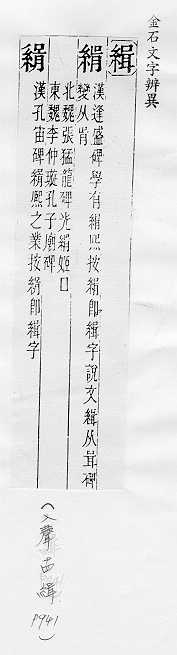 金石文字辨異
〔緝〕
緝 漢逢盛碑學有緝熙按緝卽緝字說文緝从咠碑
變从肯
北魏張猛龍碑光緝姬囗
東魏李仲璇孔子廟碑
緝 漢孔宙碑緝熙之業按緝卽緝字
(入聲 緝
P941)